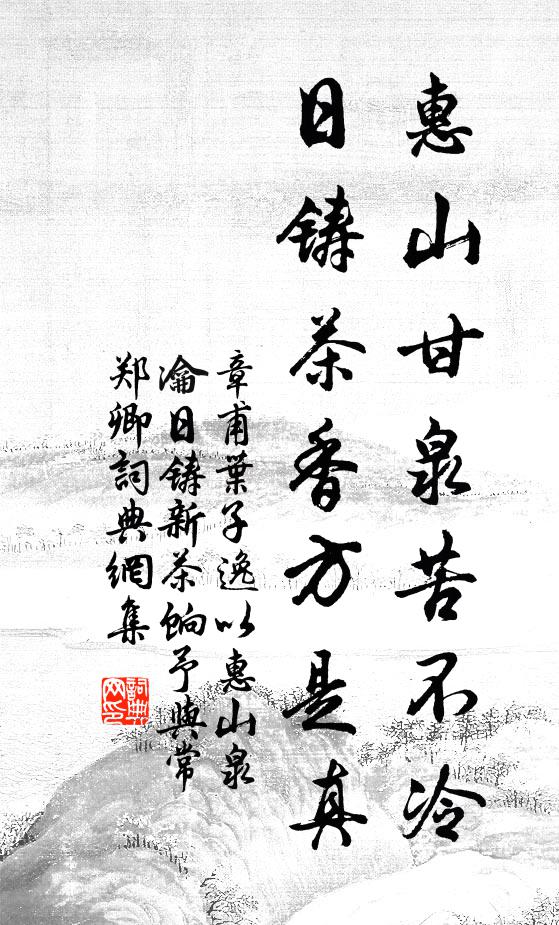 惠山甘泉苦不冷
日铸茶香方是真
章甫葉子逸以惠山泉
瀹日铸新茶餉予與常
郑卿詞典網集
詞典网印